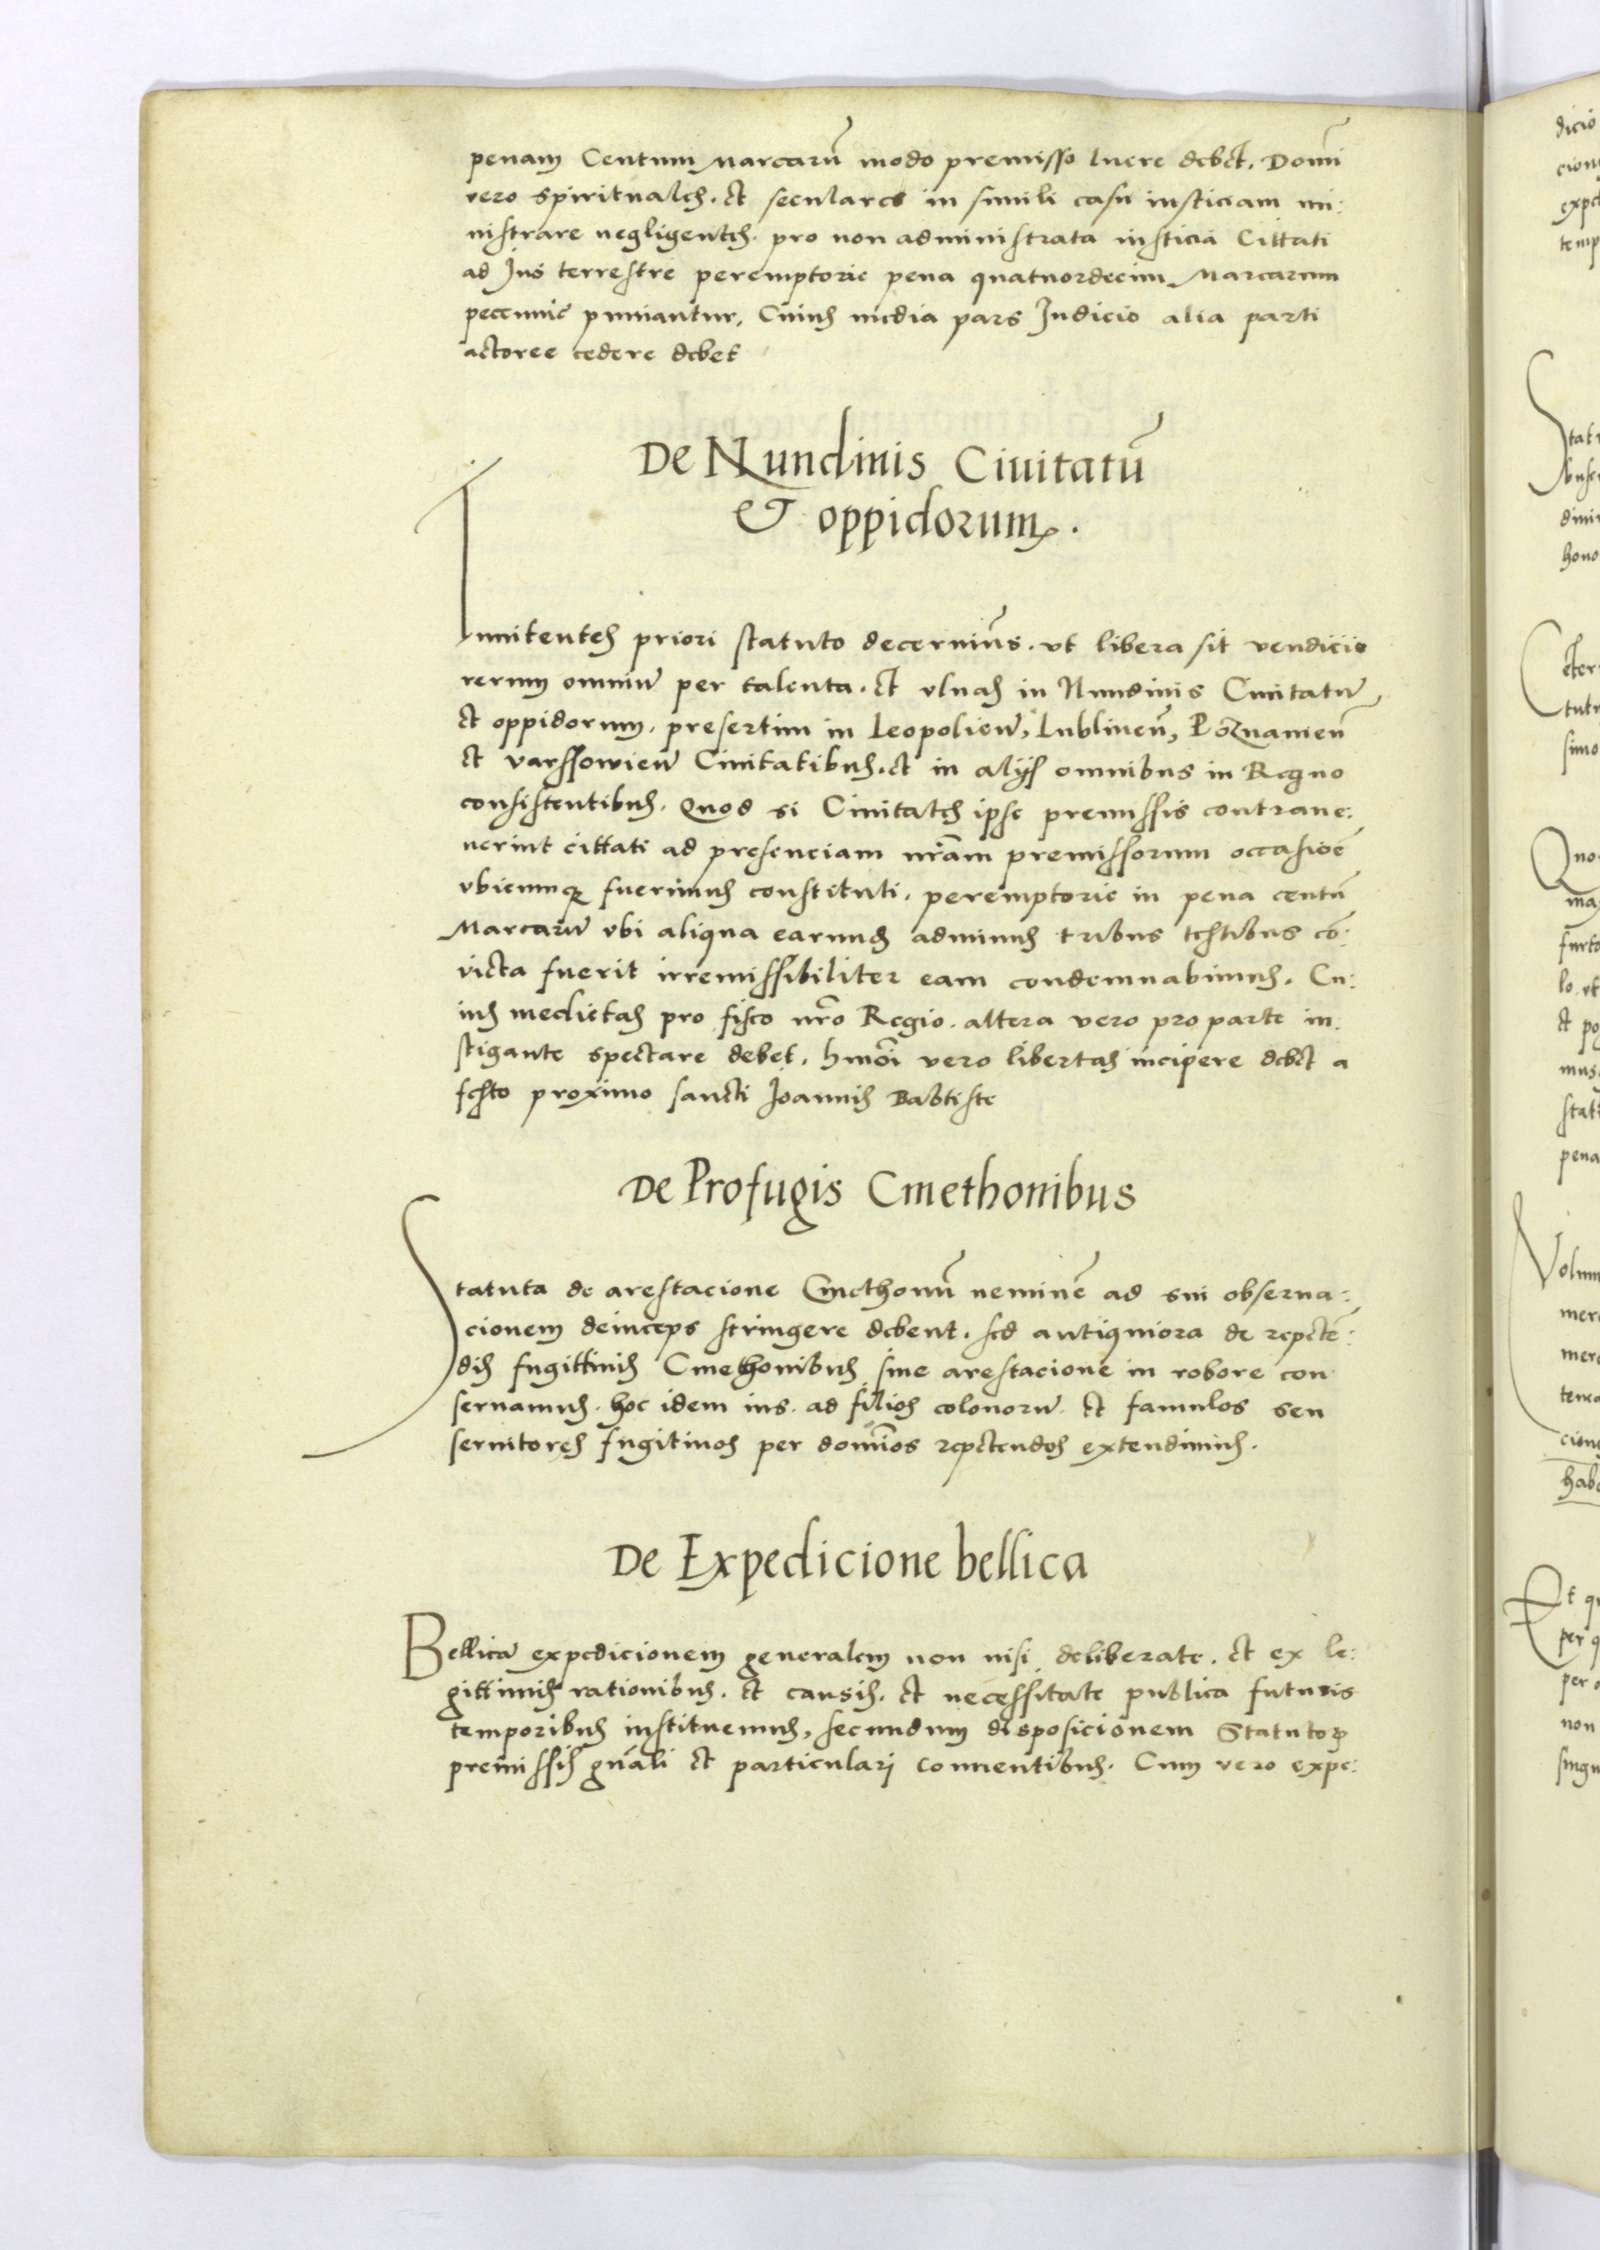 penam Centum Marcarū modo premisso luere debet. Domī
vero spirituales. et seculares in simili casu iusticiam mi:
nistrare negligentes. pro non administrata iusticia Cittati
ad Jus terrestre peremptorie pena quatuordecim Marcarum
peccunie puniantur, Cuius media pars Judicio alia parti
actoree cedere debet
De Nundinis Ciuitatū
& oppidorum.
Innitentes priori statuto decernim̄s. vt libera sit vendicio
rerum omniū per talenta. et vlnas in Nundinis Ciuitatū
et oppidorum. presertim in Leopolien̄, Lublinen̄, Poznanien̄
et varssowien̄ Ciuitatibus. et in alijs omnibus in Regno
consistentibus. Quod si Ciuitates ipse premissis contraue:
nerint cittati ad presenciam nr̄am premissorum occasioē
vbicumqȝ fuerimus constituti, peremptorie in pena centū
Marcarū vbi aliqua earum adminus tribus testibus cō:
victa fuerit irremissibiliter eam condemnabimus. Cu:
ius medietas pro fisco nr̄o Regio. altera vero pro parte in:
stigante spectare debet. hmōi vero libertas incipere debet a
festo proximo sancti Joannis Babtiste
De Profugis Cmethonibus
Statuta de arestacione Cmethonū neminē ad sui obserua:
cionem deinceps stringere debent. sed antiquiora de repetē:
dis fugittiuis Cmethonibus sine arestacione in robore con
seruamus. hoc idem ius. ad filios colonorū. et famulos seu
seruitores fugitiuos per domīos repetendos extendimus.
De Expedicione bellica
Bellicā expedicionem generalem non nisi deliberate. et ex le:
gittimis rationibus. et causis. et necessitate publica futuris
temporibus instituemus, secundum disposicionem Statutoꝝ
premissis gn̄ali et particulari conuentibus. Cum vero expe: